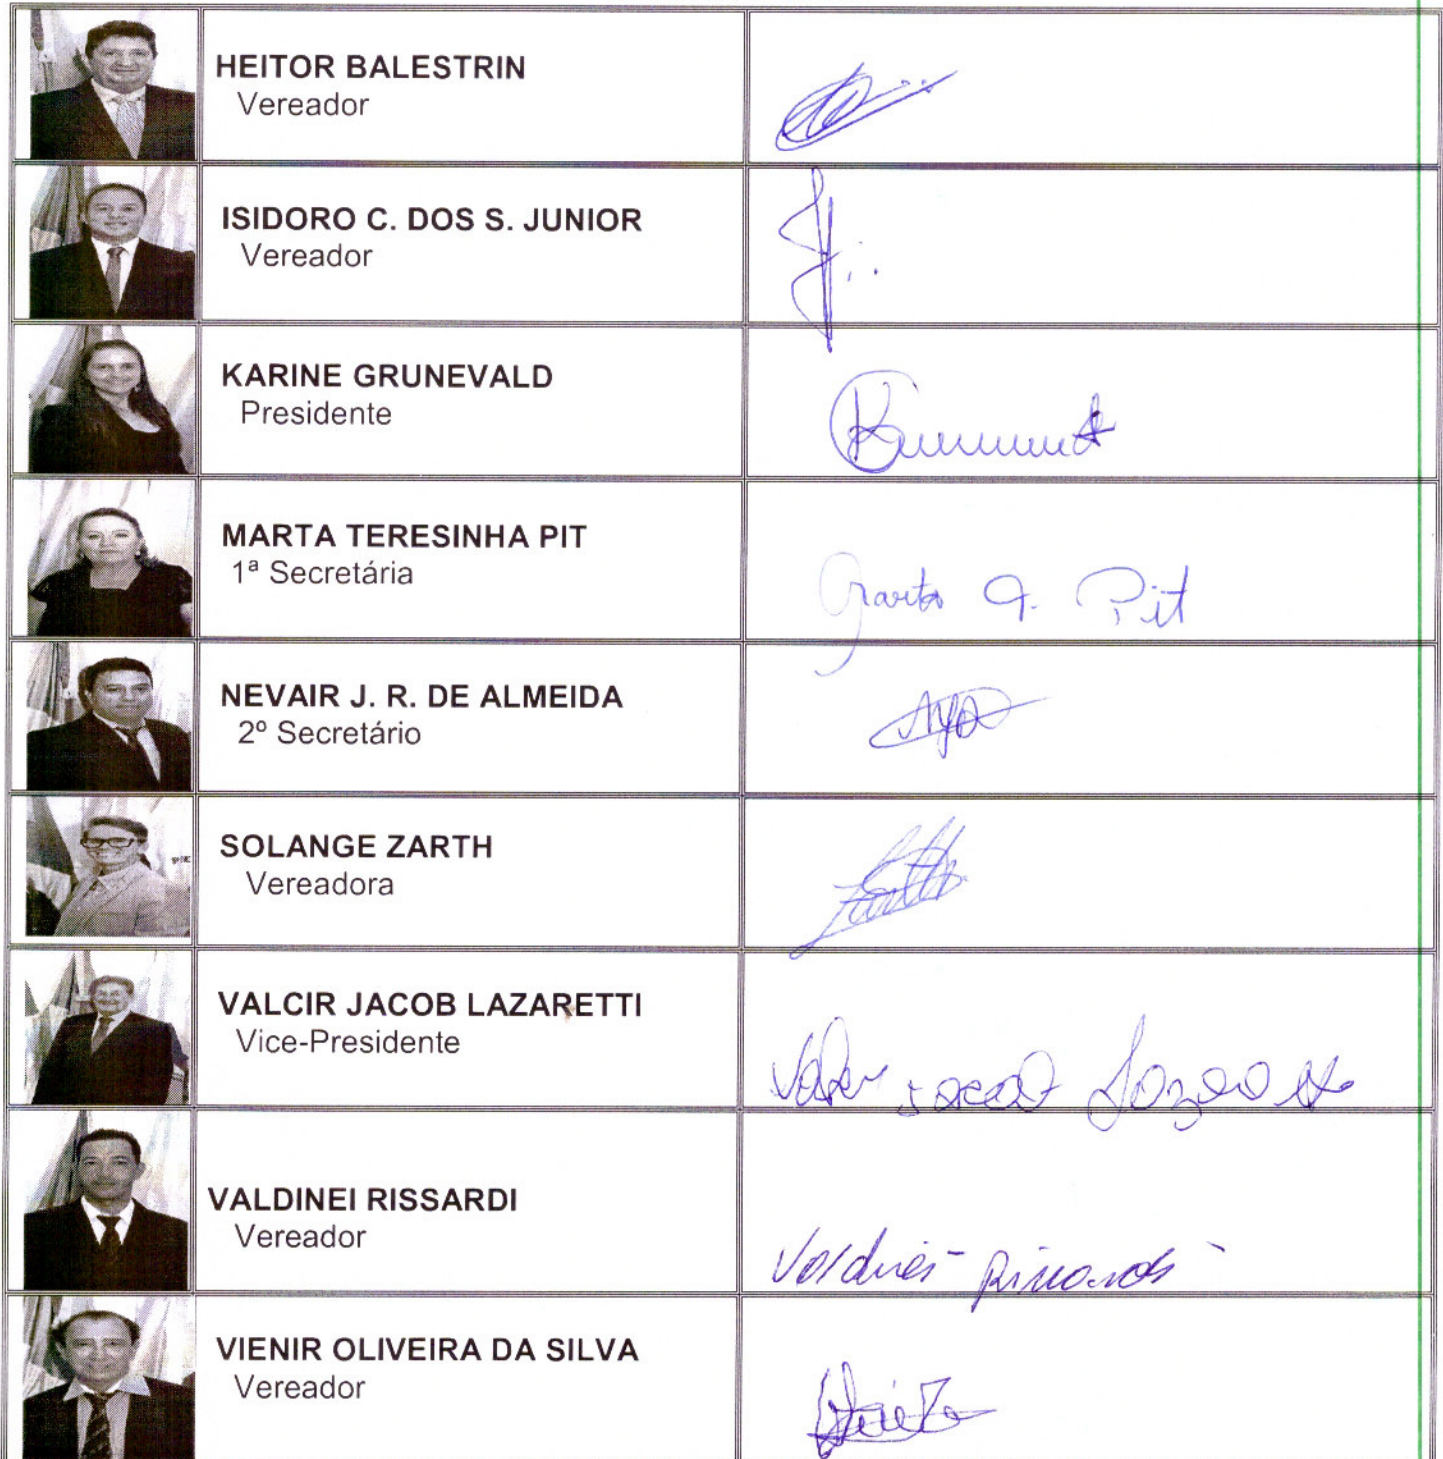 HEITOR BALESTRIN
Vereador
ISIDORO C. DOS S. JUNIOR
Vereador
KARINE GRUNEVALD
Presidente
MARTA TERESINHA PIT
1ª Secretária
Marta T. Pit
NEVAIR J. R. DE ALMEIDA
2º Secretário
SOLANGE ZARTH
Vereadora
VALCIR JACOB LAZARETTI
Vice-Presidente
VALDINEI RISSARDI
Vereador
Valdinei Rissardi
VIENIR OLIVEIRA DA SILVA
Vereador